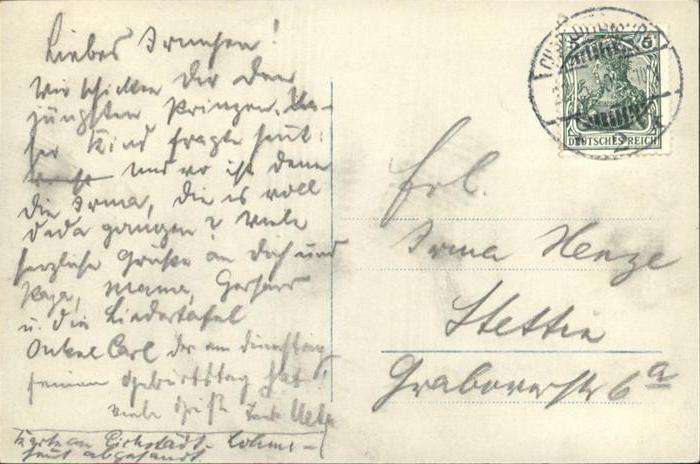 Liebes Irmchen!
Wir schicken Dir den
jüngsten Prinzen. Un-
ser Kind fragte heut:
und wo ist denn
die Irma, die is woll
dada gangen? Viele
herzliche Grüße an Dich und
Papa, Mama, Gerhard
u. die Liedertafel
Onkel Carl der am Dienstag
seinen Geburtstag hat!
viele Grüße
Karte an
heut abgesandt.
5
DEUTSCHES REICH
Frl.
Irma Henze
Stettin
Grabowerstr 6a